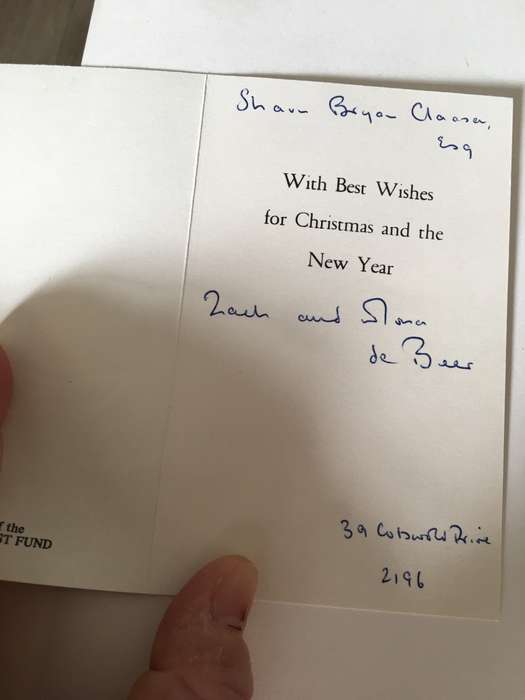 Shaun Bryan Claasen,
Esq
With Best Wishes
for Christmas and the
New Year
Zach and Mona
de Beer
39 Cotswold Drive
2196
f the
ST FUND